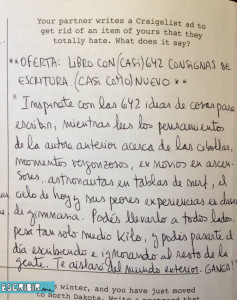 Your partner writes a Craigslist ad to
get rid of an item of yours that they
totally hate. What does it say?
**OFERTA: LIBRO CON (CASI) 642 CONSIGNAS DE
ESCRITURA. (CASI COMO) NUEVO**
"Inspirate con las 642 ideas de cosas para
escribir, mientras lees los pensamientos
de la autora anterior acerca de las cebollas,
momentos vergonzosos, ex novios en ascen-
sores, astronautas en tablas de surf, el
cielo de hoy y sus peores experiencias en clases
de gimnasia. Podés llevarlo a todos lados,
pesa tan solo medio kilo, y podés pasarte el
día escribiendo e ignorando al resto de la
gente. Te aislará del mundo exterior. GANGA!
ESCRIBIR
winter, and you have just moved
to North Dakota. Write a postcard that